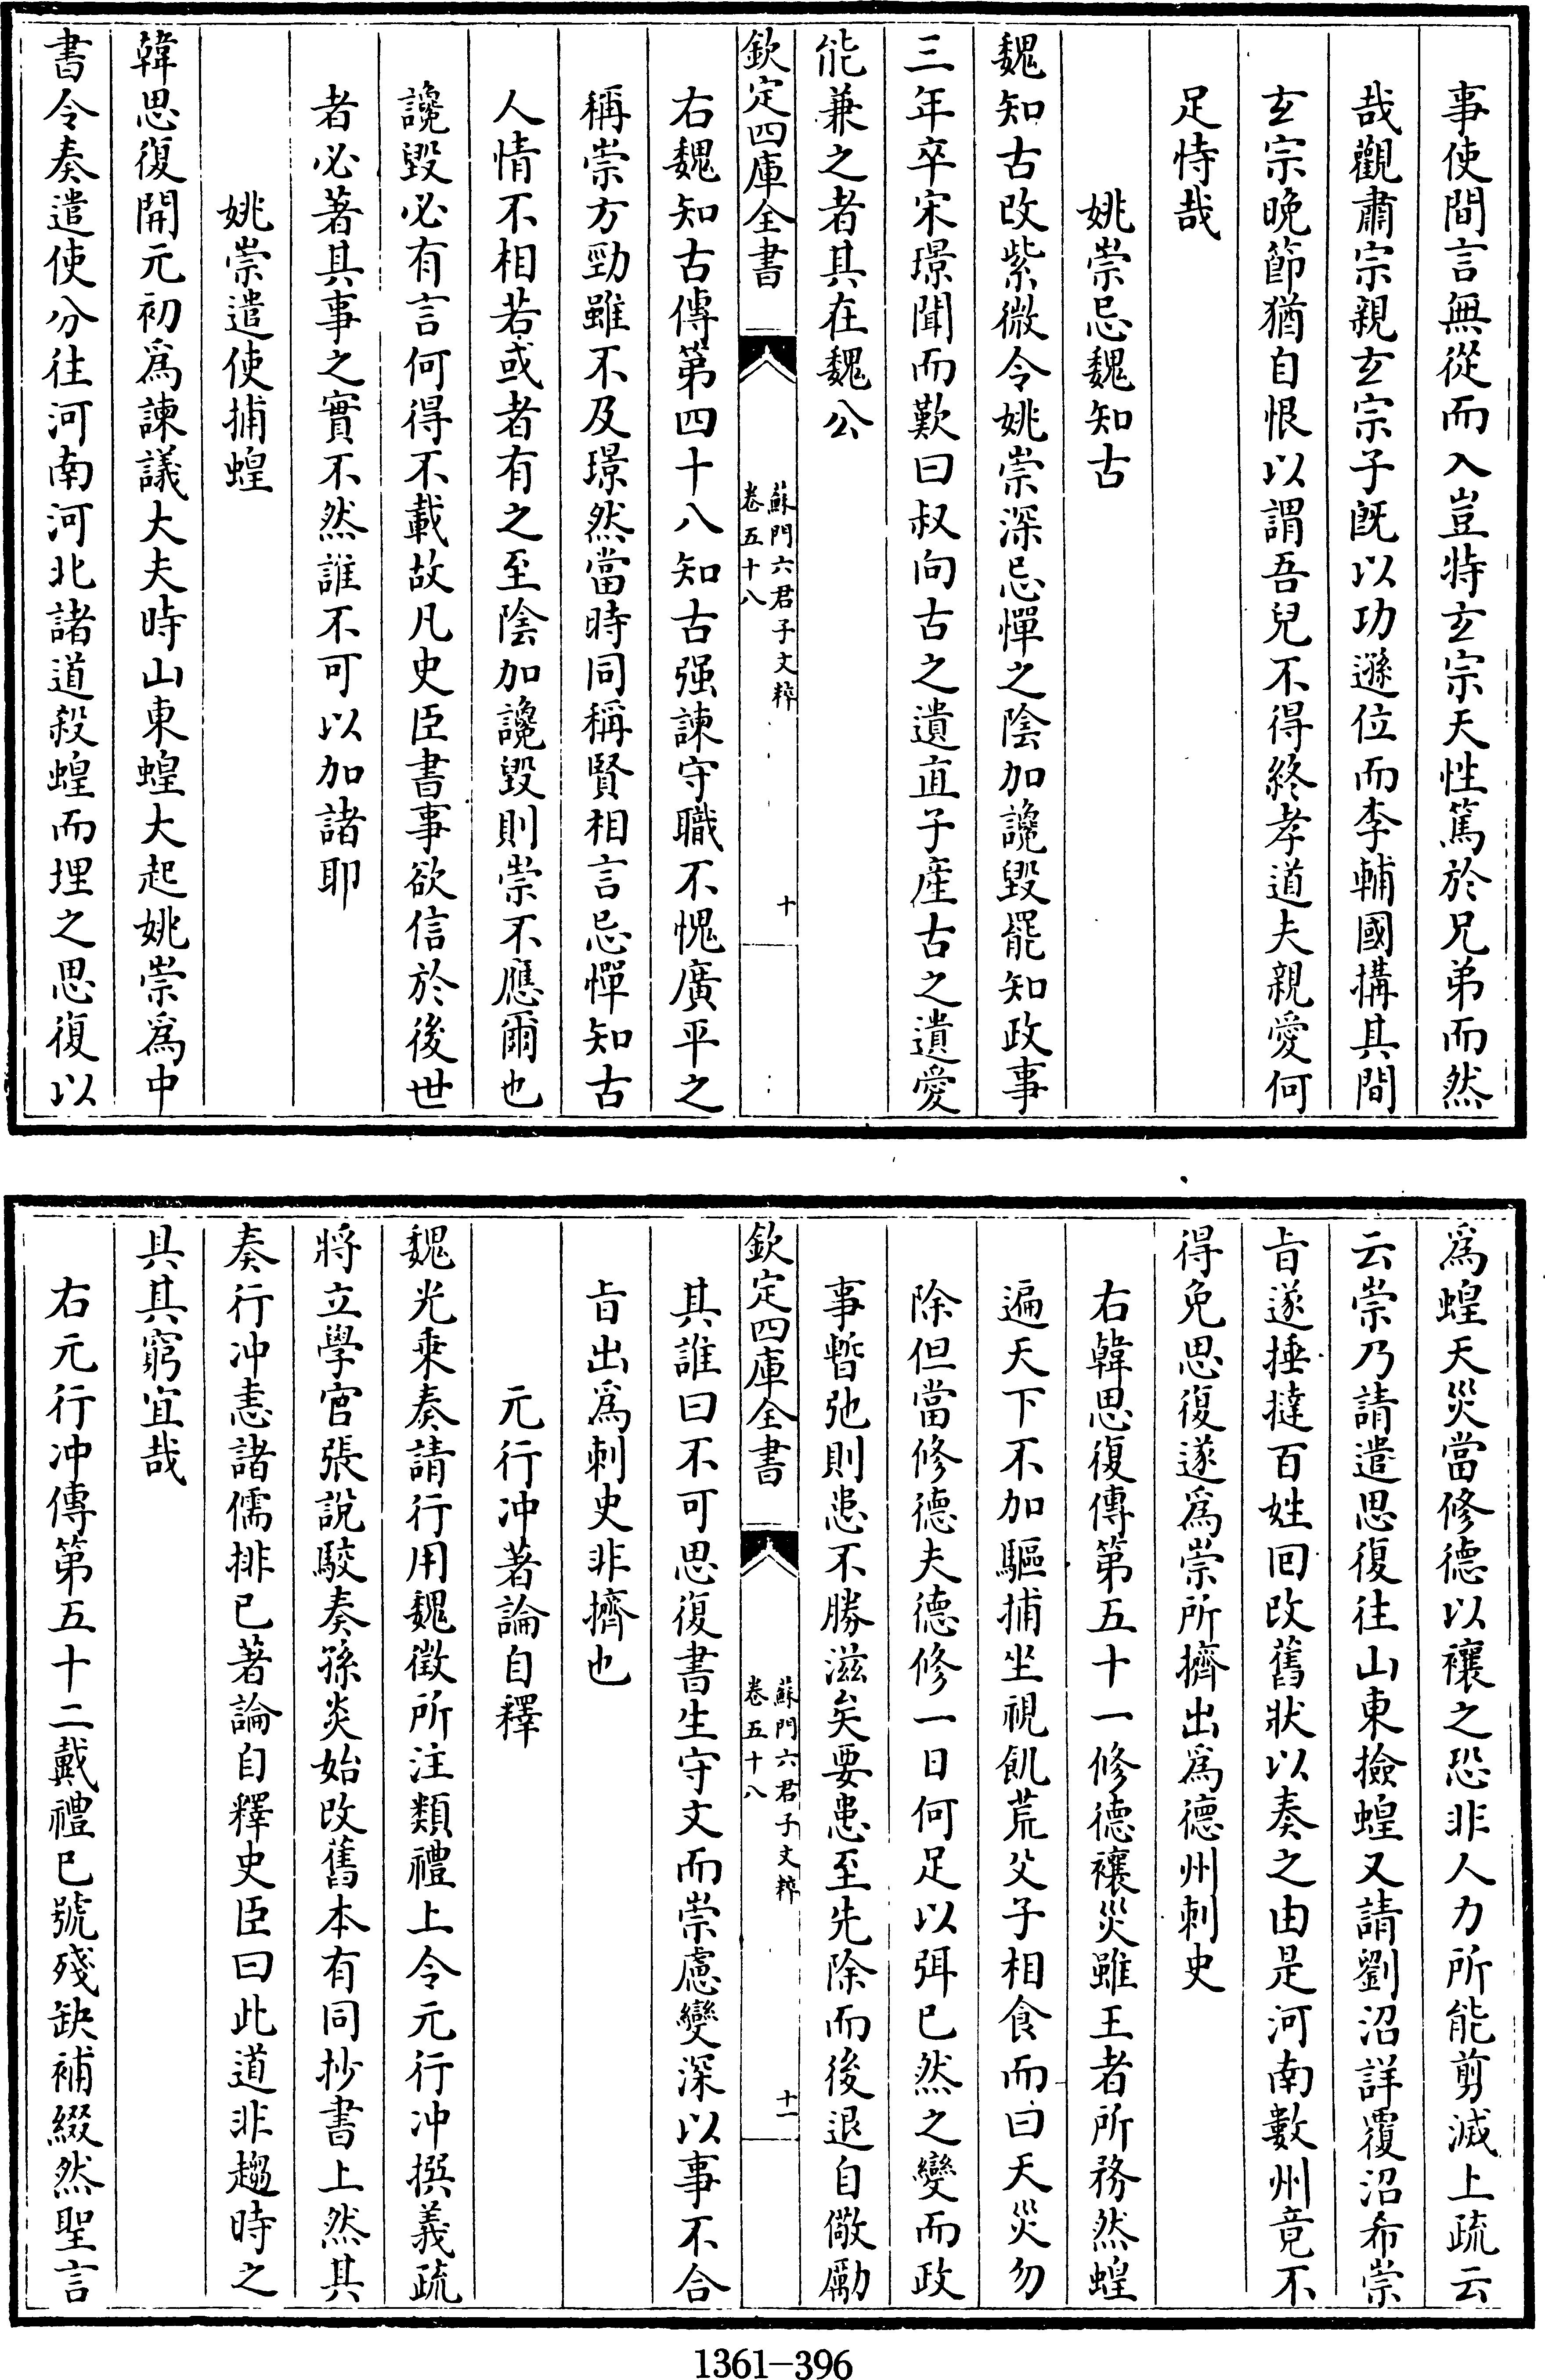 事使間言無從而入豈特玄宗天性篤於兄弟而然
哉觀肅宗親玄宗子旣以功遜位而李輔國搆其間
玄宗晚節猶自恨以謂吾兒不得終孝道夫親愛何
足恃哉
姚崇忌魏知古
魏知古改紫微令姚崇深忌憚之陰加讒毀罷知政事
三年卒宋璟聞而歎曰叔向古之遺直子産古之遺愛
能兼之者其在魏公
欽定四庫全書
蘇門六君子文粹
卷五十八
十
右魏知古傳第四十八知古强諫守職不愧廣平之
稱崇方勁雖不及璟然當時同稱賢相言忌憚知古
人情不相若或者有之至陰加讒毀則崇不應爾也
讒毀必有言何得不載故凡史臣書事欲信於後世
者必著其事之實不然誰不可以加諸耶
姚崇遣使捕蝗
韓思復開元初爲諫議大夫時山東蝗大起姚崇爲中
書令奏遣使分往河南河北諸道殺蝗而埋之思復以
爲蝗天災當修德以禳之恐非人力所能剪滅上疏云
云崇乃請遣思復往山東撿蝗又請劉沼詳覆沼希崇
旨遂捶撻百姓囘改舊狀以奏之由是河南數州竟不
得免思復遂爲崇所擠出爲德州刺史
右韓思復傳第五十一修德禳災雖王者所務然蝗
遍天下不加驅捕坐視飢荒父子相食而曰天災勿
除但當修德夫德修一日何足以弭已然之變而政
事暫弛則患不勝滋矣要患至先除而後退自儆勵
欽定四庫全書
蘇門六君子文粹
卷五十八
十一
其誰曰不可思復書生守文而崇慮變深以事不合
旨出爲刺史非擠也
元行冲著論自釋
魏光乘奏請行用魏徵所注類禮上令元行冲撰義疏
將立學官張說駮奏孫炎始改舊本有同抄書上然其
奏行冲恚諸儒排已著論自釋史臣曰此道非趨時之
具其窮宜哉
右元行冲傳第五十二戴禮已號殘缺補綴然聖言
1361-396